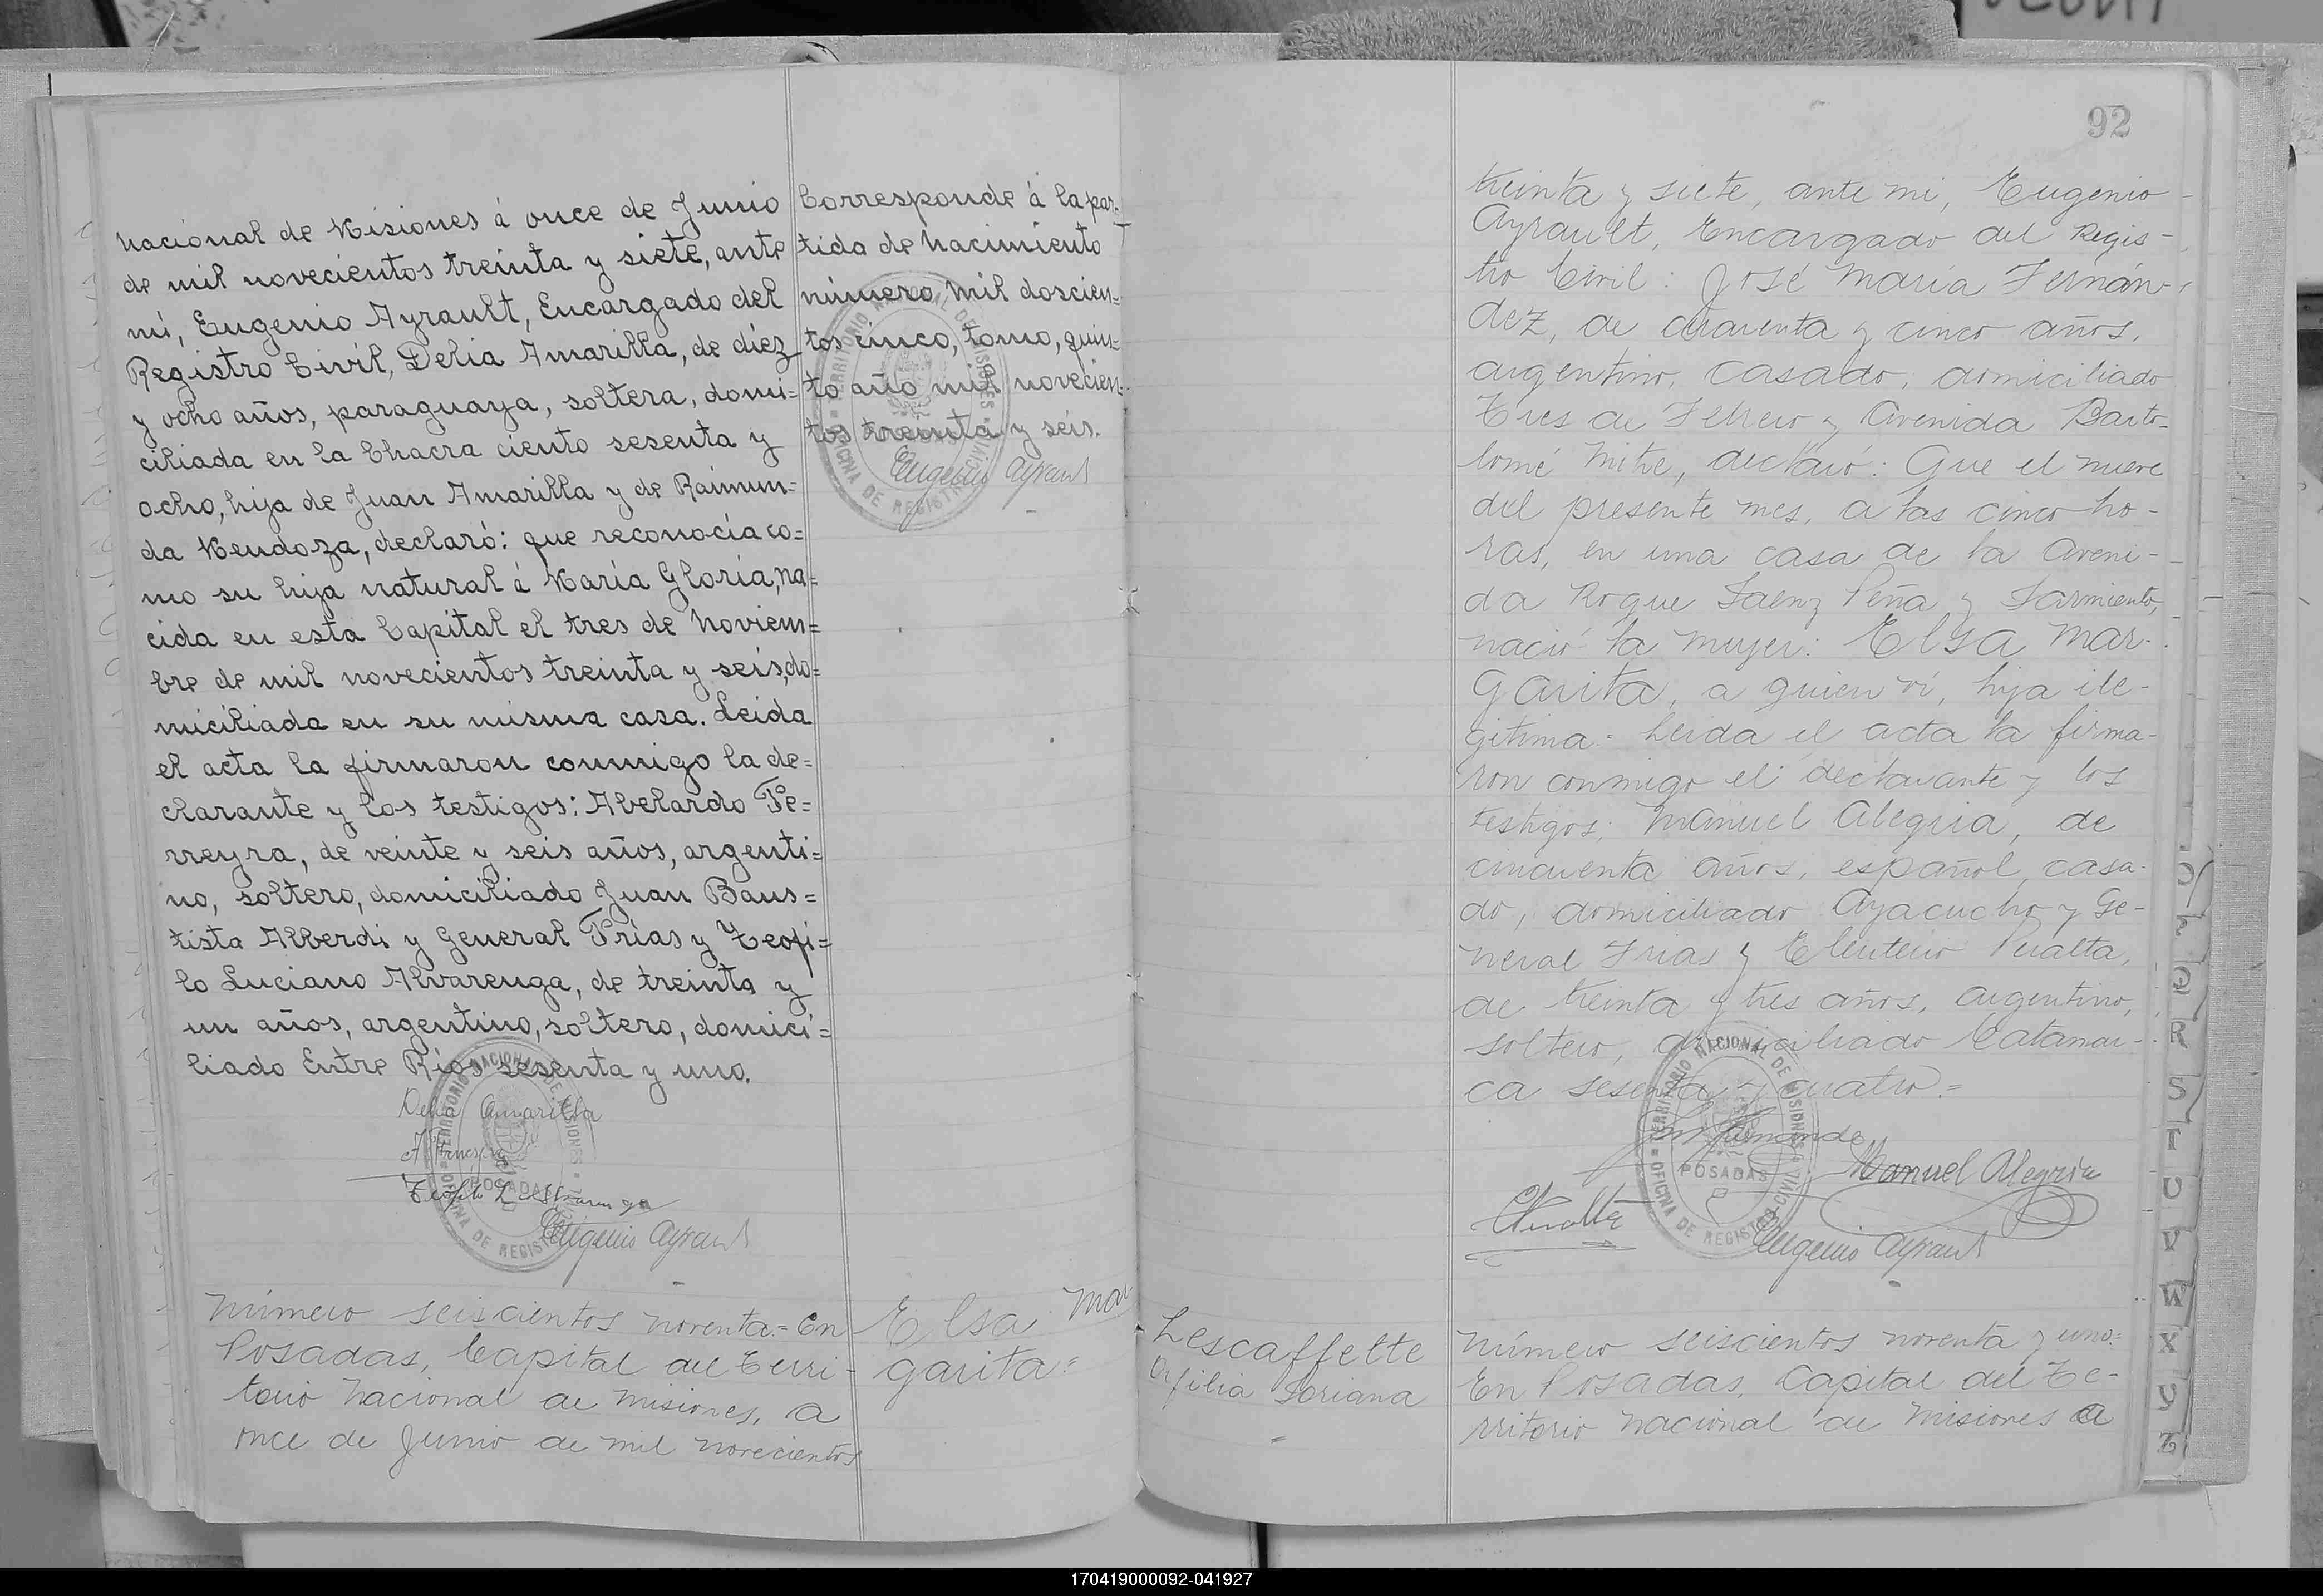 nacional de Misiones á once de Junio
de mil novecientos treinta y siete, ante
mí, Eugenio Ayrault, Encargado del
Registro Civil, Delia Amarilla, de diéz
y ocho años, paraguaya, soltera, domi=
ciliada en la Chacra ciento sesenta y
ocho, hija de Juan Amarilla y de Raimun=
da Mendoza, declaró: que reconocía co=
mo su hija natural á María Gloria, na=
cida en esta Capital el tres de Noviem=
bre de mil novecientos treinta y seis, do=
miciliada en su misma casa. Leida
el acta la firmaron conmigo la de=
clarante y los testigos: Abelardo Fe=
rreyra, de veinte y seis años, argenti=
no, soltero, domiciliado Juan Baus=
tista Alberdi y General Frías y Teofi=
lo Luciano Alvarenga, de treinta y
un años, argentino, soltero, domici=
liado Entre Ríos sesenta y uno.
Delia Amarilla
Teofilo L Alvarenga
Eugenio Ayrault
TERRITORIO NACIONAL DE MISIONES
OFICINA DE REGISTRO CIVIL
POSADAS
Corresponde á la par-
tida de nacimiento
número mil doscien=
tos cinco, tomo, quin=
to año mil novecien=
tos treinta y séis.
Eugenio Ayrault
TERRITORIO NACIONAL DE MISIONES
OFICINA DE REGISTRO CIVIL
Número seiscientos noventa.= En
Posadas, Capital del Terri-
torio Nacional de Misiones, a
once de Junio de mil novecientos
Elsa Mar
garita=
92
treinta y siete, ante mi, Eugenio
Ayrault, Encargado del Regis-
tro Civil: José María Fernán-
dez, de cuarenta y cinco años,
argentino, casado, domiciliado
Tres de Febrero y Avenida Barto-
lomé Mitre, declaró: Que el nueve
del presente mes, a las cinco ho-
ras, en una casa de la Aveni-
da Roque Saenz Peña y Sarmiento,
nació la mujer: Elsa Mar-
garita, a quien ví, hija ile-
gitima.- Leida el acta la firma-
ron conmigo el declarante y los
testigos; Manuel Alegria, de
cincuenta años, español, casa-
do, domiciliado Ayacucho y Ge-
neral Frias y Eleuterio Peralta,
de treinta y tres años, argentino,
soltero, domiciliado Catamar-
ca sesenta y cuatro.=
Manuel Alegria
Eugenio Ayrault
TERRITORIO NACIONAL DE MISIONES
OFICINA DE REGISTRO CIVIL
POSADAS
Lescaffette
Ofilia Soriana
Número seiscientos noventa y uno.=
En Posadas, Capital del Te-
rritorio Nacional de Misiones a
Q
R
S
T
U
V
W
X
Y
Z
170419000092-041927